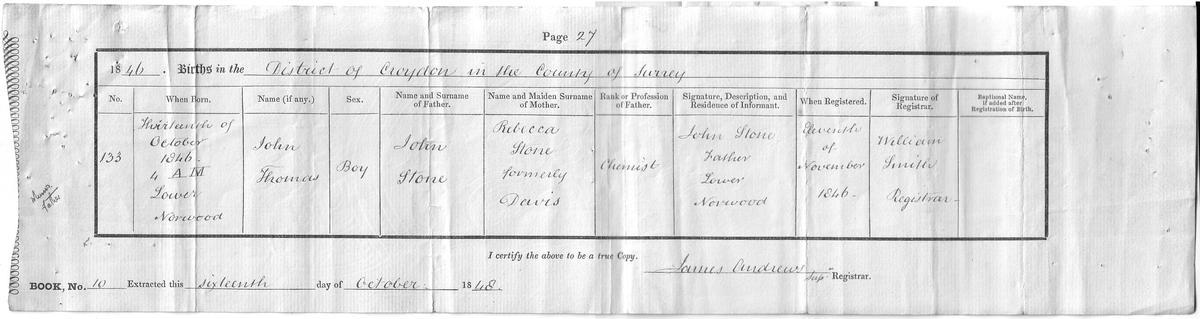 Page 27
1846. Births in the District of Croydon in the County of Surrey
No. When Born. Name (if any.) Sex. Name and Surname of Father. Name and Maiden Surname of Mother. Rank or Profession of Father. Signature, Description, and Residence of Informant. When Registered. Signature of Registrar. Baptismal Name, if added after Registration of Birth.
133
Thirteenth of
October
1846.
4 AM
Lower
Norwood
John
Thomas
Boy
John
Stone
Rebecca
Stone
formerly
Davis
Chemist
John Stone
Father
Lower
Norwood
Eleventh
of
November
1846.
William
Smith
Registrar
Father
I certify the above to be a true Copy.
James Andrews Supt Registrar.
BOOK, No. 10 Extracted this sixteenth day of October 1848.